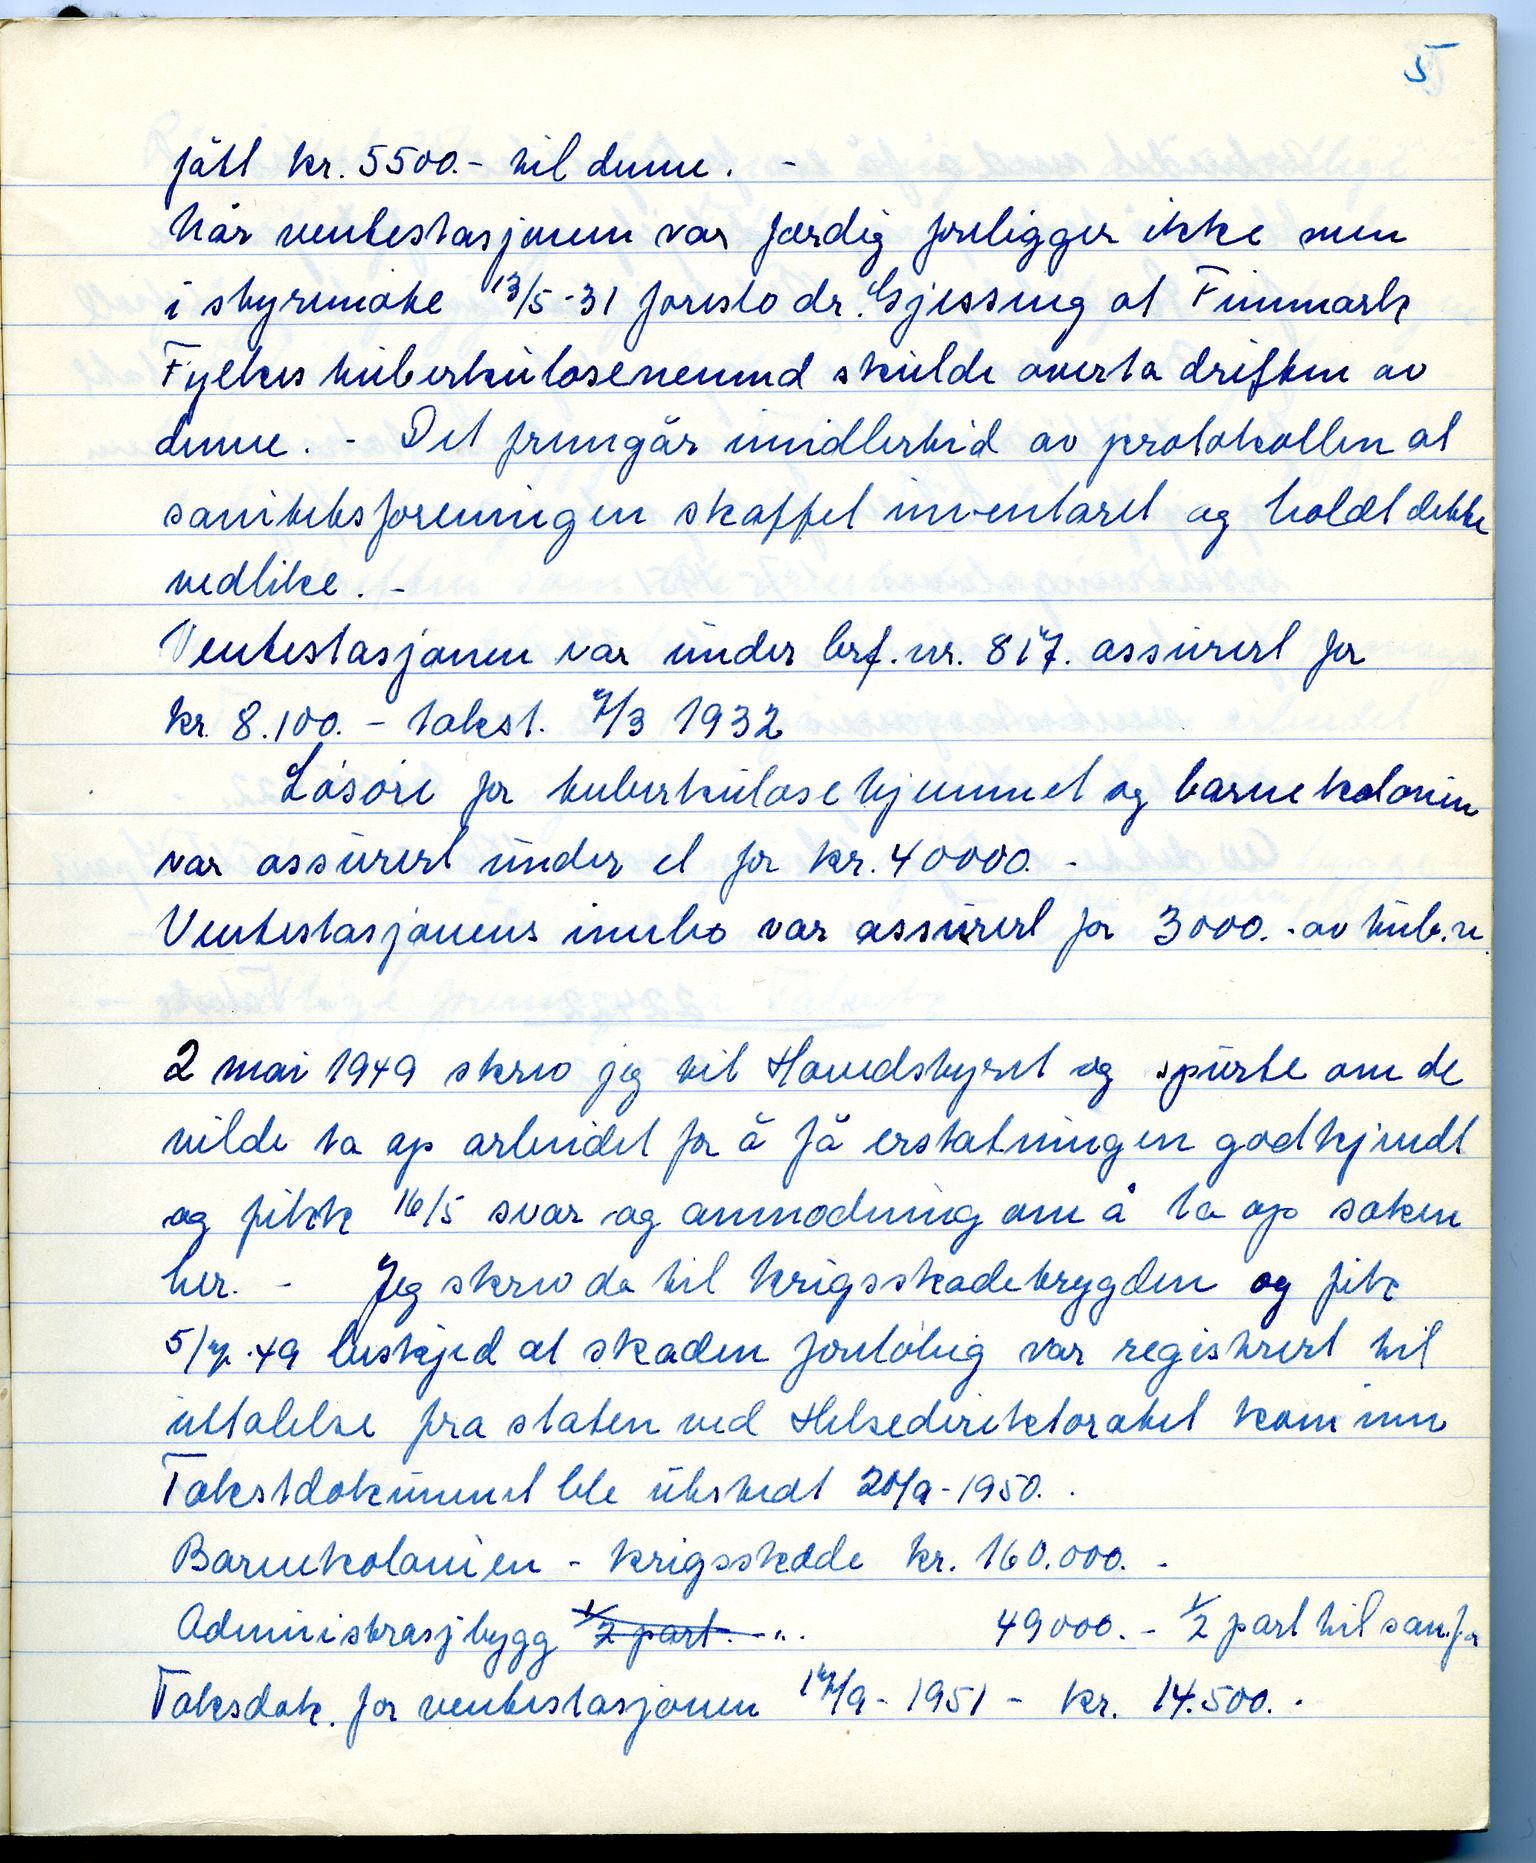 5
fått kr. 5500.- til denne. -
Når ventestasjonen var færdig foreligger ikke men
i styremøte 13/5-31 foreslo dr. Gjessing at Finmark
Fylkes tuberkulosenemnd skulde overta driften av
denne. - Det fremgår imidlertid av protokollen at
sanitetsforeningen skaffet inventaret og holdt dette
vedlike. -
Ventestasjonen var under brf. nr. 817. assurert for
kr. 8.100. - takst. 7/3 1932
Løsøre for tuberkulosehjemmet og barnekolonien
var assurert under et for kr. 40000. -
Ventestasjonens innbo var assurert for 3000. - av tub.n.
2 mai 1949 skrev jeg til Hovedstyret og spurte om de
vilde ta op arbeidet for å få erstatningen godkjendt
og fikk 16/5 svar og anmodning om å ta op saken
her. - Jeg skrev da til Krigsskadetrygden og fikk
5/7.49 beskjed at skaden foreløbig var registrert til
uttalelse fra staten ved Helsedirektoratet kom inn
Takstdokummet ble utstedt 20/9-1950. .
Barnekolonien - krigsskade kr. 160.000. -
Administrasjbygg 1/2 part. - ". 49000. - 1/2 part til san.for
Taksdok. for ventestasjonen 17/9 - 1951 - kr. 14.500. -